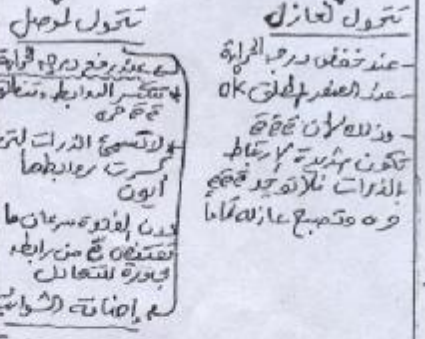 تتحول لعازل
- عند خفض درجه الحرارة
- عند الصفر المطلق 0k
- وذلك لأن ē ē ē
تكون شديدة الإرتباط
بالذرات فلا توجد ē ē ē
حره وتصبح عازله تماماً
تتحول لموصل
عند رفع درجه الحرارة
تنكسر الروابط وتنطلق
ē ē حره
لاتسمى الذرات التى
كسرت روابطها
أيون
لأن الفجوه سرعان ما
تقتنص ē من رابطه
مجاورة للتعادل
إضافة الشوائب